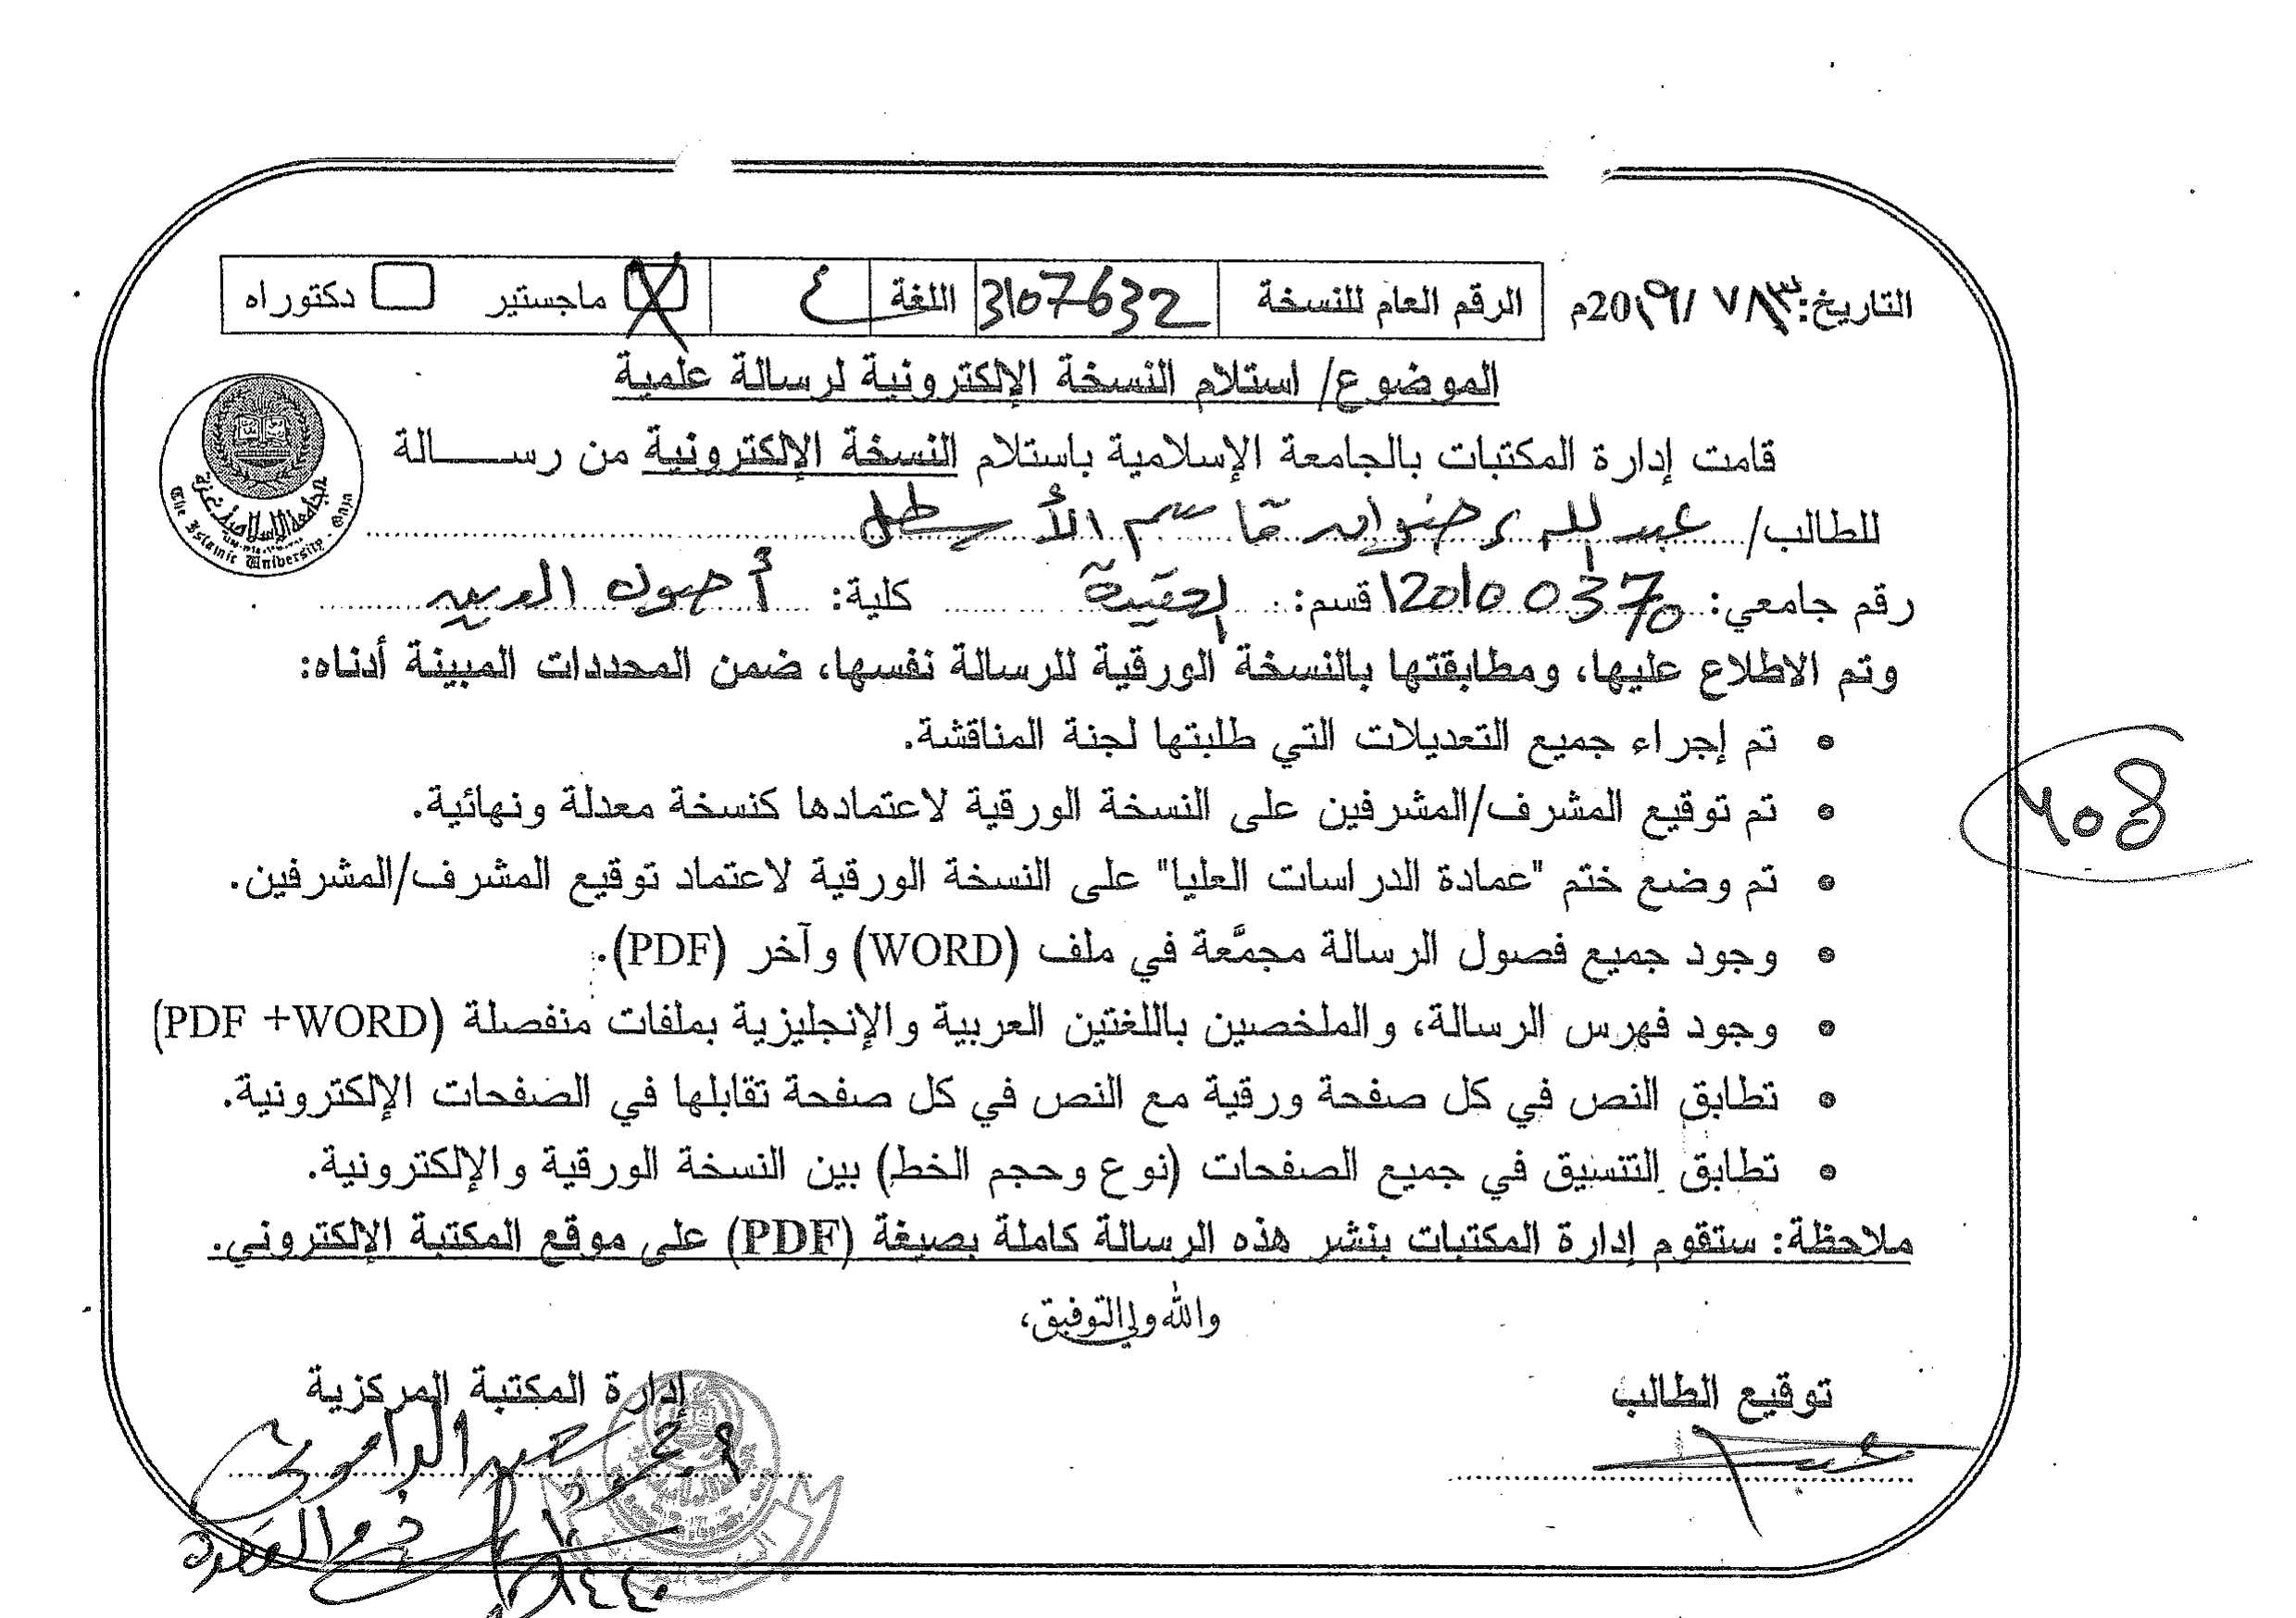 التاريخ: /٧/2019م الرقم العام للنسخة 3107632 اللغة ع ماجستير دكتوراه
الموضوع/ استلام النسخة الإلكترونية لرسالة علمية
قامت إدارة المكتبات بالجامعة الإسلامية باستلام النسخة الإلكترونية من رســـالة
للطالب/ عبد الله رضوان قاسم الأسطل
رقم جامعي: 120100370 قسم: العقيدة كلية: أصول الدين
وتم الاطلاع عليها، ومطابقتها بالنسخة الورقية للرسالة نفسها، ضمن المحددات المبينة أدناه:
• تم إجراء جميع التعديلات التي طلبتها لجنة المناقشة.
• تم توقيع المشرف/المشرفين على النسخة الورقية لاعتمادها كنسخة معدلة ونهائية.
• تم وضع ختم "عمادة الدراسات العليا" على النسخة الورقية لاعتماد توقيع المشرف/المشرفين.
• وجود جميع فصول الرسالة مجمَّعة في ملف (WORD) وآخر (PDF).
• وجود فهرس الرسالة، والملخصين باللغتين العربية والإنجليزية بملفات منفصلة (PDF +WORD)
• تطابق النص في كل صفحة ورقية مع النص في كل صفحة تقابلها في الصفحات الإلكترونية.
• تطابق التنسيق في جميع الصفحات (نوع وحجم الخط) بين النسخة الورقية والإلكترونية.
ملاحظة: ستقوم إدارة المكتبات بنشر هذه الرسالة كاملة بصيغة (PDF) على موقع المكتبة الإلكتروني.
والله ولي التوفيق،
توقيع الطالب إدارة المكتبة المركزية
الجامعة الإسلامية غزة
The Islamic University - Gaza